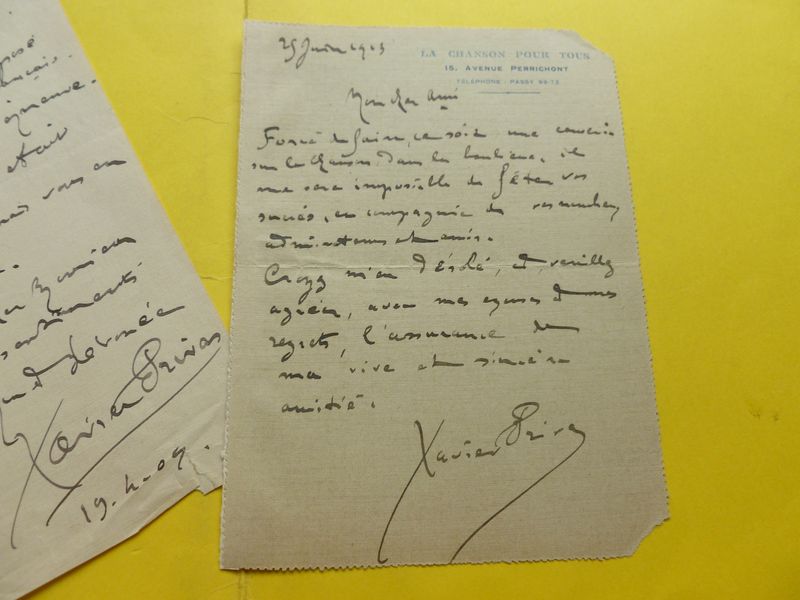 pose
ançais.
était
vous en
sentiments.
dévoués
Xavier Privas
19.4.09.
25 Juin 1913
LA CHANSON POUR TOUS
15, AVENUE PERRICHONT
TÉLÉPHONE: PASSY
Mon cher ami
Forcé de faire, ce soir une
sur la Chanson dans la banlieue, il
me sera impossible de fêter vos
succès, en compagnie de vos nombreux
admirateurs et amis.
Croyez m'en désolé, et veuillez
agréer, avec mes excuses et mes
regrets, l'assurance de
ma vive et sincère
amitié.
Xavier Privas